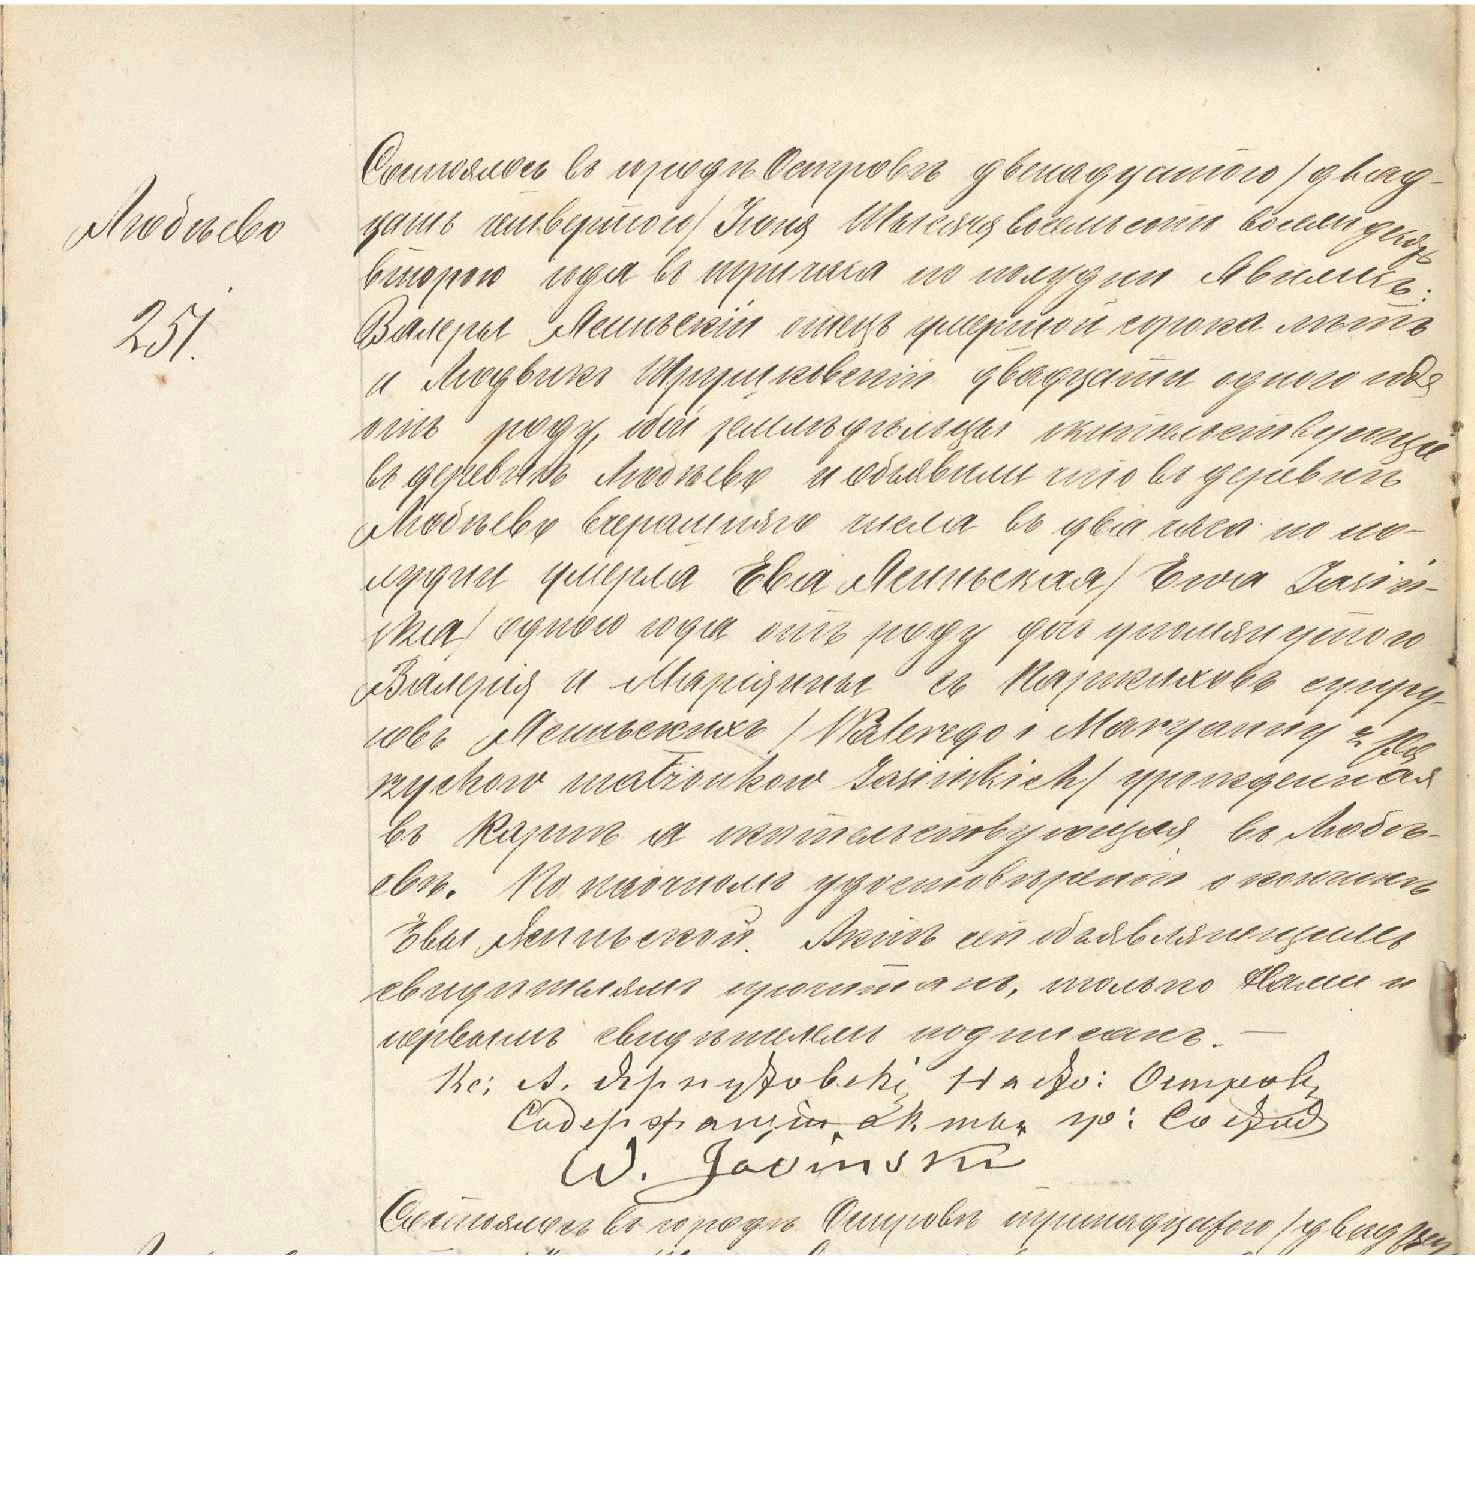 Любѣево
251.
Состоялось въ городѣ Островѣ двенадцатого /двад-
цать четвертого/ Іюня тысяча восемьсотъ восемьдесятъ
второго года въ три часа по полудни Явились:
Валеры Ясиньскій отецъ умершой сорока лѣтъ
и Людвикъ двадцати одного года
отъ роду, оба земледѣльцы жительствующіе
въ деревнѣ Любѣево и объявили что въ деревнѣ
Любѣево вчерашняго числа въ два часа по по-
лудни умерла Ева Ясиньская / Ewa Jasiń-
ska / одного года отъ роду дочь упомянутого
Валерія и Маріянны съ супру-
говъ Ясиньскихъ / Walerego i Maryanny z
małżonków Jasińskich / урожденная
въ а жительствующая въ Любѣ-
евѣ. По наочномъ удостовѣреніи о кончинѣ
Евы Ясиньской. Актъ сей объявляющимъ
свидѣтелямъ прочитанъ, только Нами и
первымъ свидѣтелемъ подписанъ. —
Кс: А. Насто: Островѣ
Содержащій Акты гр: Состоя
W. Jasiński
Состоялось въ городѣ Островѣ тринадцатого /двадцать